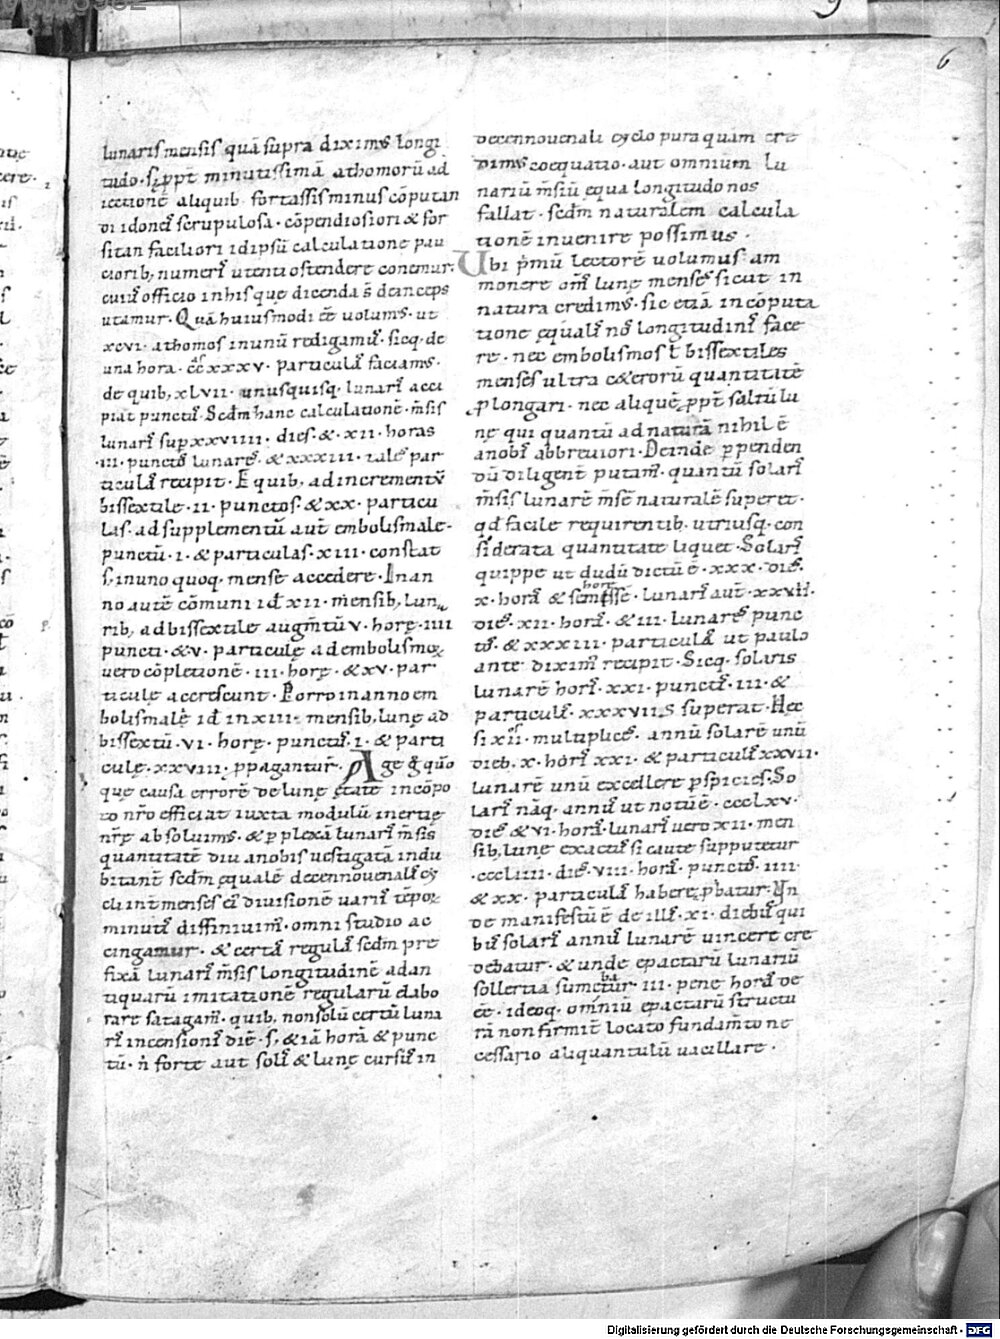 6
lunaris mensis quā supra diximꝰ longi
tudo. s; ꝓpt minutissimā athomorū ad
iectionē aliquib; fortassis minus cōputan
di idonei scrupulosa. cōpendiosiori & for
sitan faciliori id ipsū calculatione pau
ciorib; numeris utenti ostendere conemur.
cuiꝰ officio in his quę dicenda s̄ deinceps
utamur. Quā huiusmodi eē uolumꝰ. ut
xcvi. athomos in unū redigamꝰ. sicq; de
una hora. ccxxxv. particulas faciamꝰ.
de quib; xlvii. unusquisq; lunaris acci
piat punctꝰ. Scdm hanc calculationē. m̄sis
lunaris sup xxviiii. dies. &. xii. horas
.iii. punctos lunares. & xxxiii. tales par
ticulas recipit. E quib; ad incrementū
bissextile. ii. punctos. & xx. particu
las. ad supplementū aut embolismale.
punctū. i. & particulas. xiii. constat
s. in uno quoq; mense accedere. In an
no autē cōmuni id ē xii. mensib; luna
rib; ad bissextile augm̄tū v. horę. iiii
puncti. & v. particulę ad embolismoꝝ
uero cōpletionē. iii. horę. & xv. par
ticulę accrescunt. Porro in anno em
bolismalē id ē in xiii. mensib; lunę ad
bissextū. vi. horę. punctꝰ. i. & parti
culę. xxviii. ꝓpagantur. Age g̊ quō
quę causa errorē de lunę ętate in cōpo
to nr̄o efficiat iuxta modulū inertię
nr̄ę absoluimꝰ. & ꝑplexā lunaris m̄sis
quantitatē diu a nobis uestigatā indu
bitantē scdm ęqualē decennouenalis cy
cli int menses eiꝰ diuisionē uariis tēpoꝝ
minutiis diffiniuimꝰ. omni studio ac
cingamur. & certā regulā scdm pre
fixā lunaris m̄sis longitudinē ad an
tiquarū imitationē regularū elabo
rare satagamꝰ. quib; non solū certū luna
ris incensionis diē. s; & iā horā & punc
tū. n̄ forte aut solis & lunę cursus in
decennouenali cyclo pura quam cre
dimꝰ coequatio. aut omnium lu
nariū m̄siū ęqua longitudo nos
fallat. scdm naturalem calcula
tionē inuenire possimus.
Ubi p̄mū lectorē uolumus am
monere om̄s lunę menses sicut in
natura credimꝰ. sic etiā in cōputa
tione ęqualis nos longitudinis face
re. nec embolismos ł bissextiles
menses ultra cęterorū quantitatē
ꝓlongari. nec aliquē ꝓpt saltū lu
nę qui quantū ad naturā nihil ē
a nobis abbreuiori. Deinde ꝑpenden
dū diligent̄ putamꝰ. quantū solaris
m̄sis lunarē m̄sē naturalē superet.
qd facile requirentib; utriusq; con
siderata quantitate liquet. Solaris
quippe ut dudū dictū ē. xxx. dies.
x. horas & semissē hore. lunaris aut. xxviiii.
dies. xii. horas. & iii. lunares punc
tos. & xxxiii. particulas ut paulo
ante diximꝰ recipit. Sicq; solaris
lunarē horis. xxi. punctis. iii. &
particulis. xxxvii. s superat. Hęc
si xii. multiplices. annū solarē unū
dieb; x. horis xxi. & particulis xxvii.
lunarē unū excellere ꝑspicies. So
laris nāq; annus ut notū ē. ccclxv.
dies & vi. horas. lunaris uero xii. men
sib; lunę exactis si caute supputetur
.cccliiii. dies. viii. horas. punctos. iiii.
& xx. particulas habere ꝓbatur. Vn
de manifestū ē de illis. xi. diebus qui
bus solaris annus lunarē uincere cre
debatur. & unde epactarū lunariū
sollertia sumebatur. iii. pene horas de
ēē. ideoq; omniū epactarū structu
rā non firmitē locato fundam̄to ne
cessario aliquantulū uacillare.
Digitalisierung gefördert durch die Deutsche Forschungsgemeinschaft - DFG